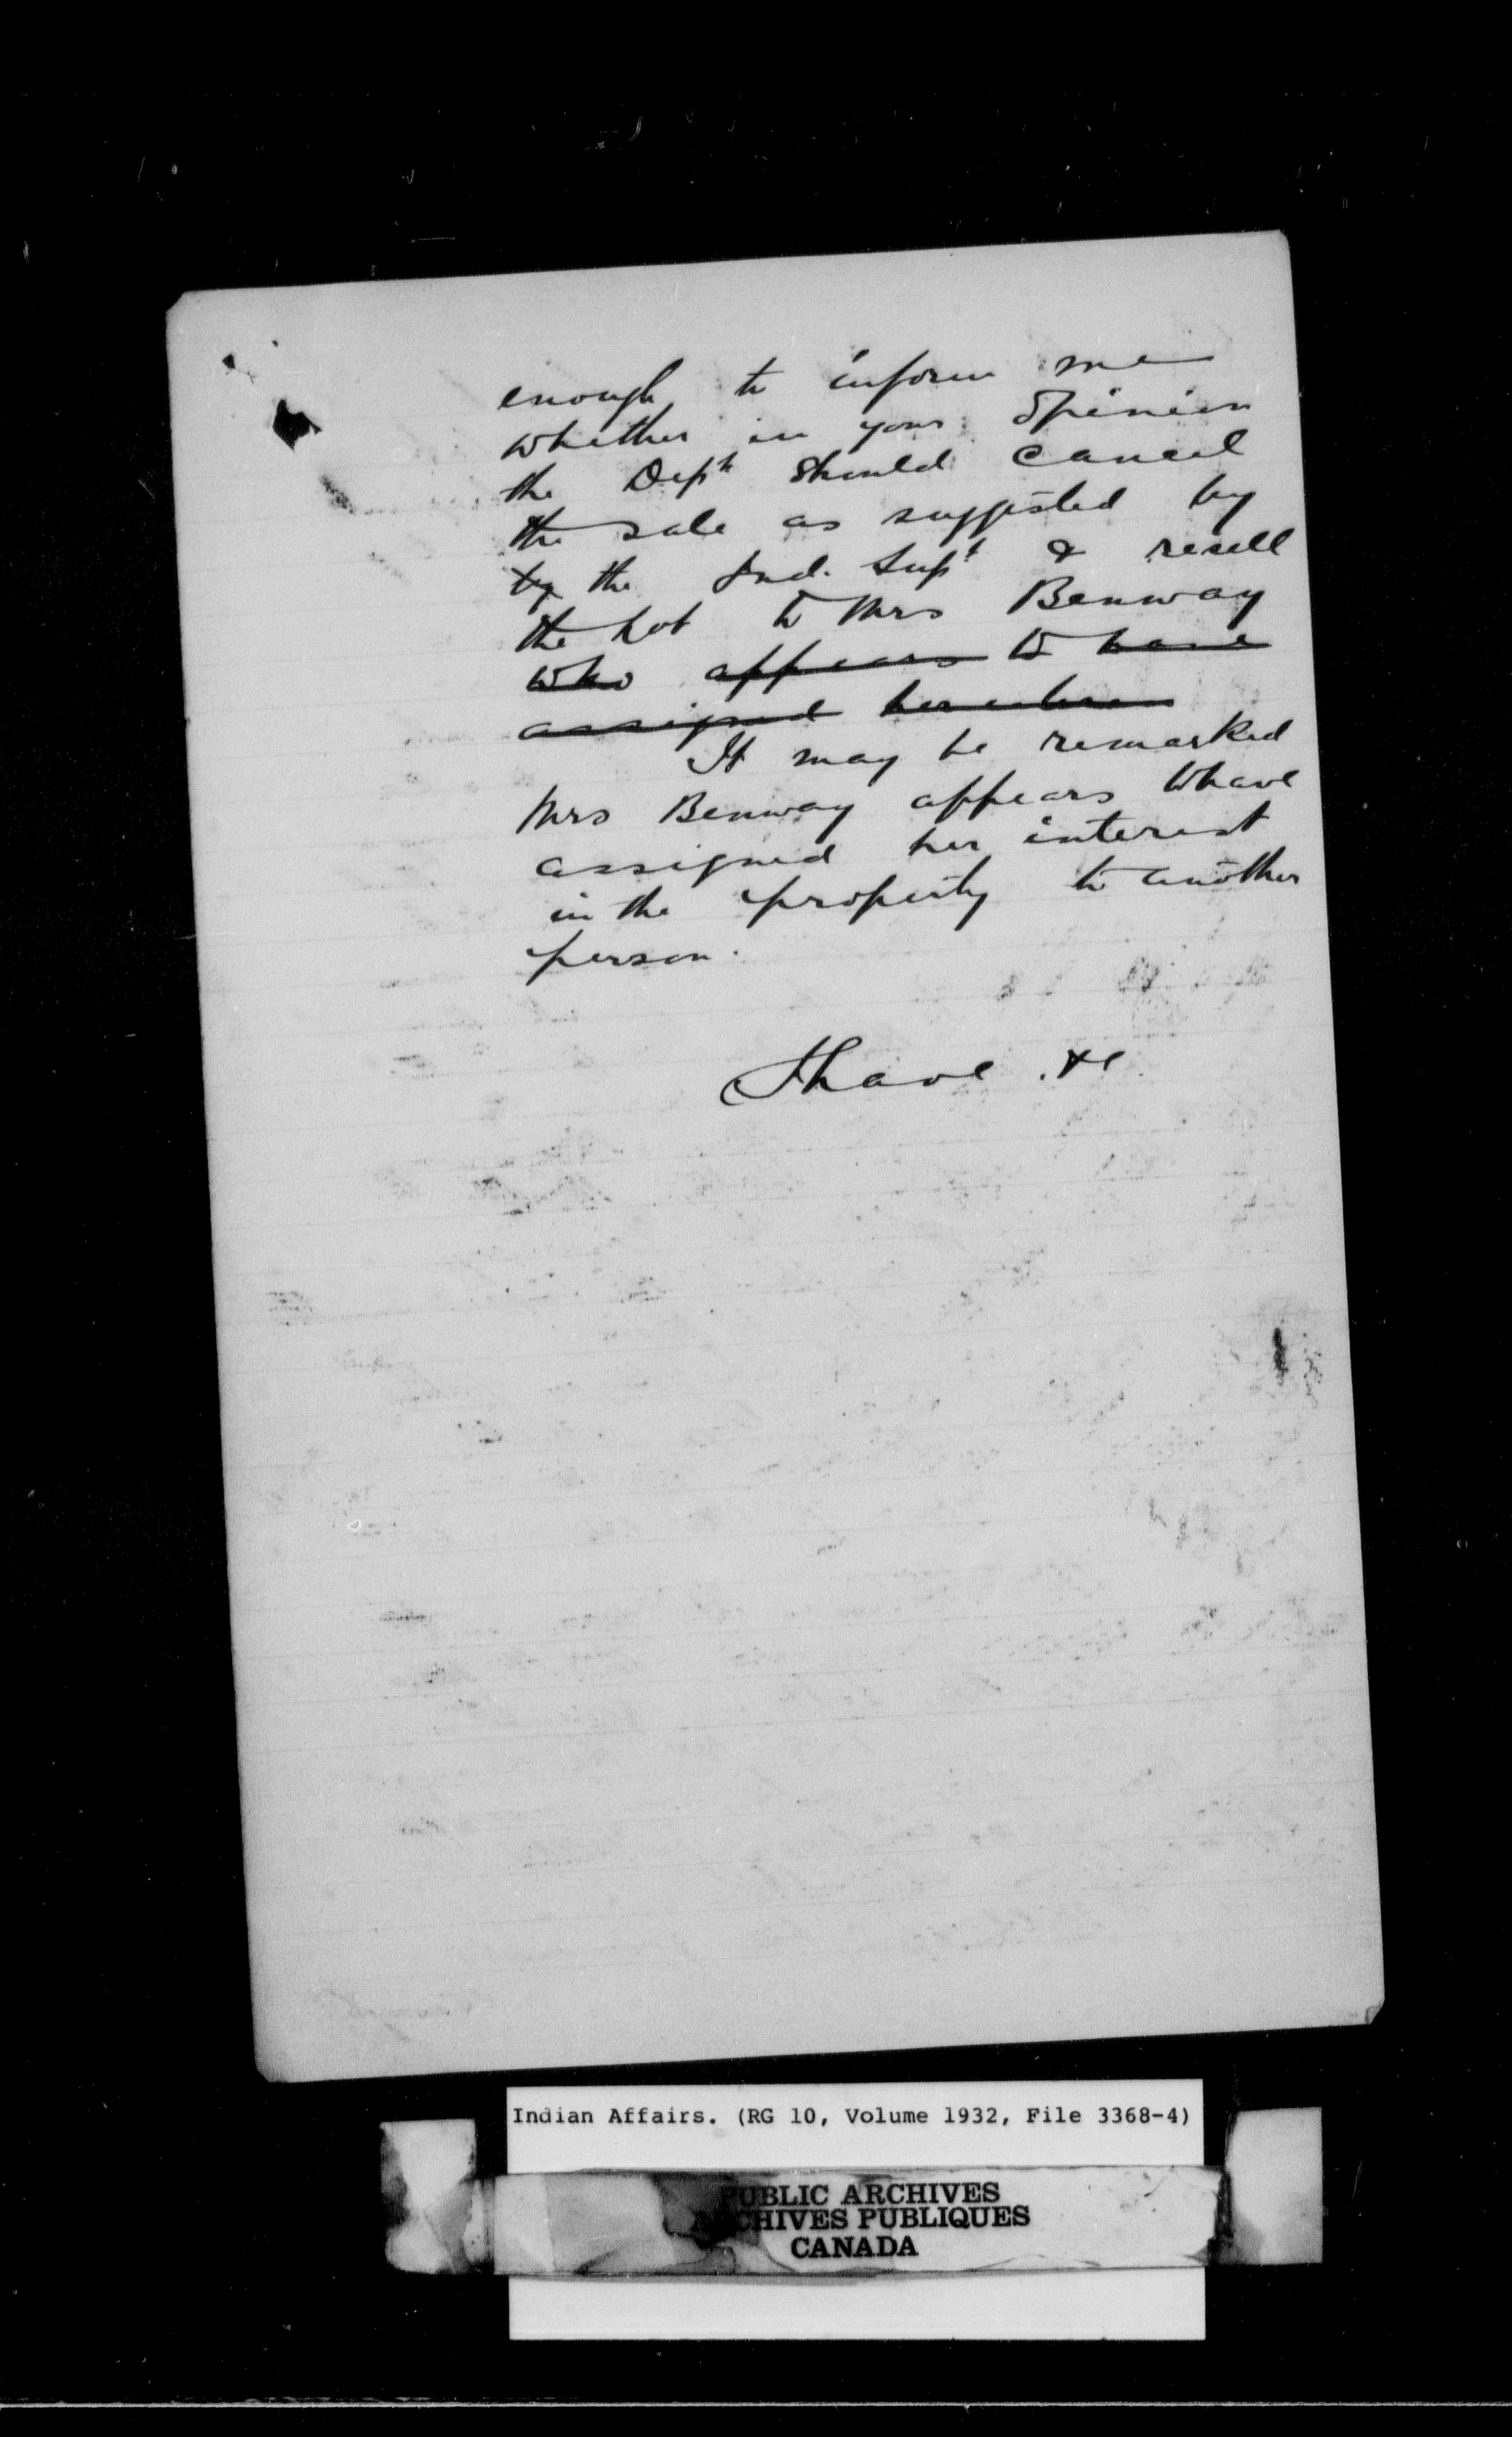 enough to inform me
whether in your opinion
the Dept should cancel
the sale as suggested by
by the Ind. Supt & resell
the Lot to Mrs Benway
who appears to have
assigned her
It may be remarked
Mrs Benway appears to have
assigned her interest
in the property to another
person.
I have &c
Indian Affairs. (RG 10, Volume 1932, File 3368-4)
PUBLIC ARCHIVES
ARCHIVES PUBLIQUES
CANADA